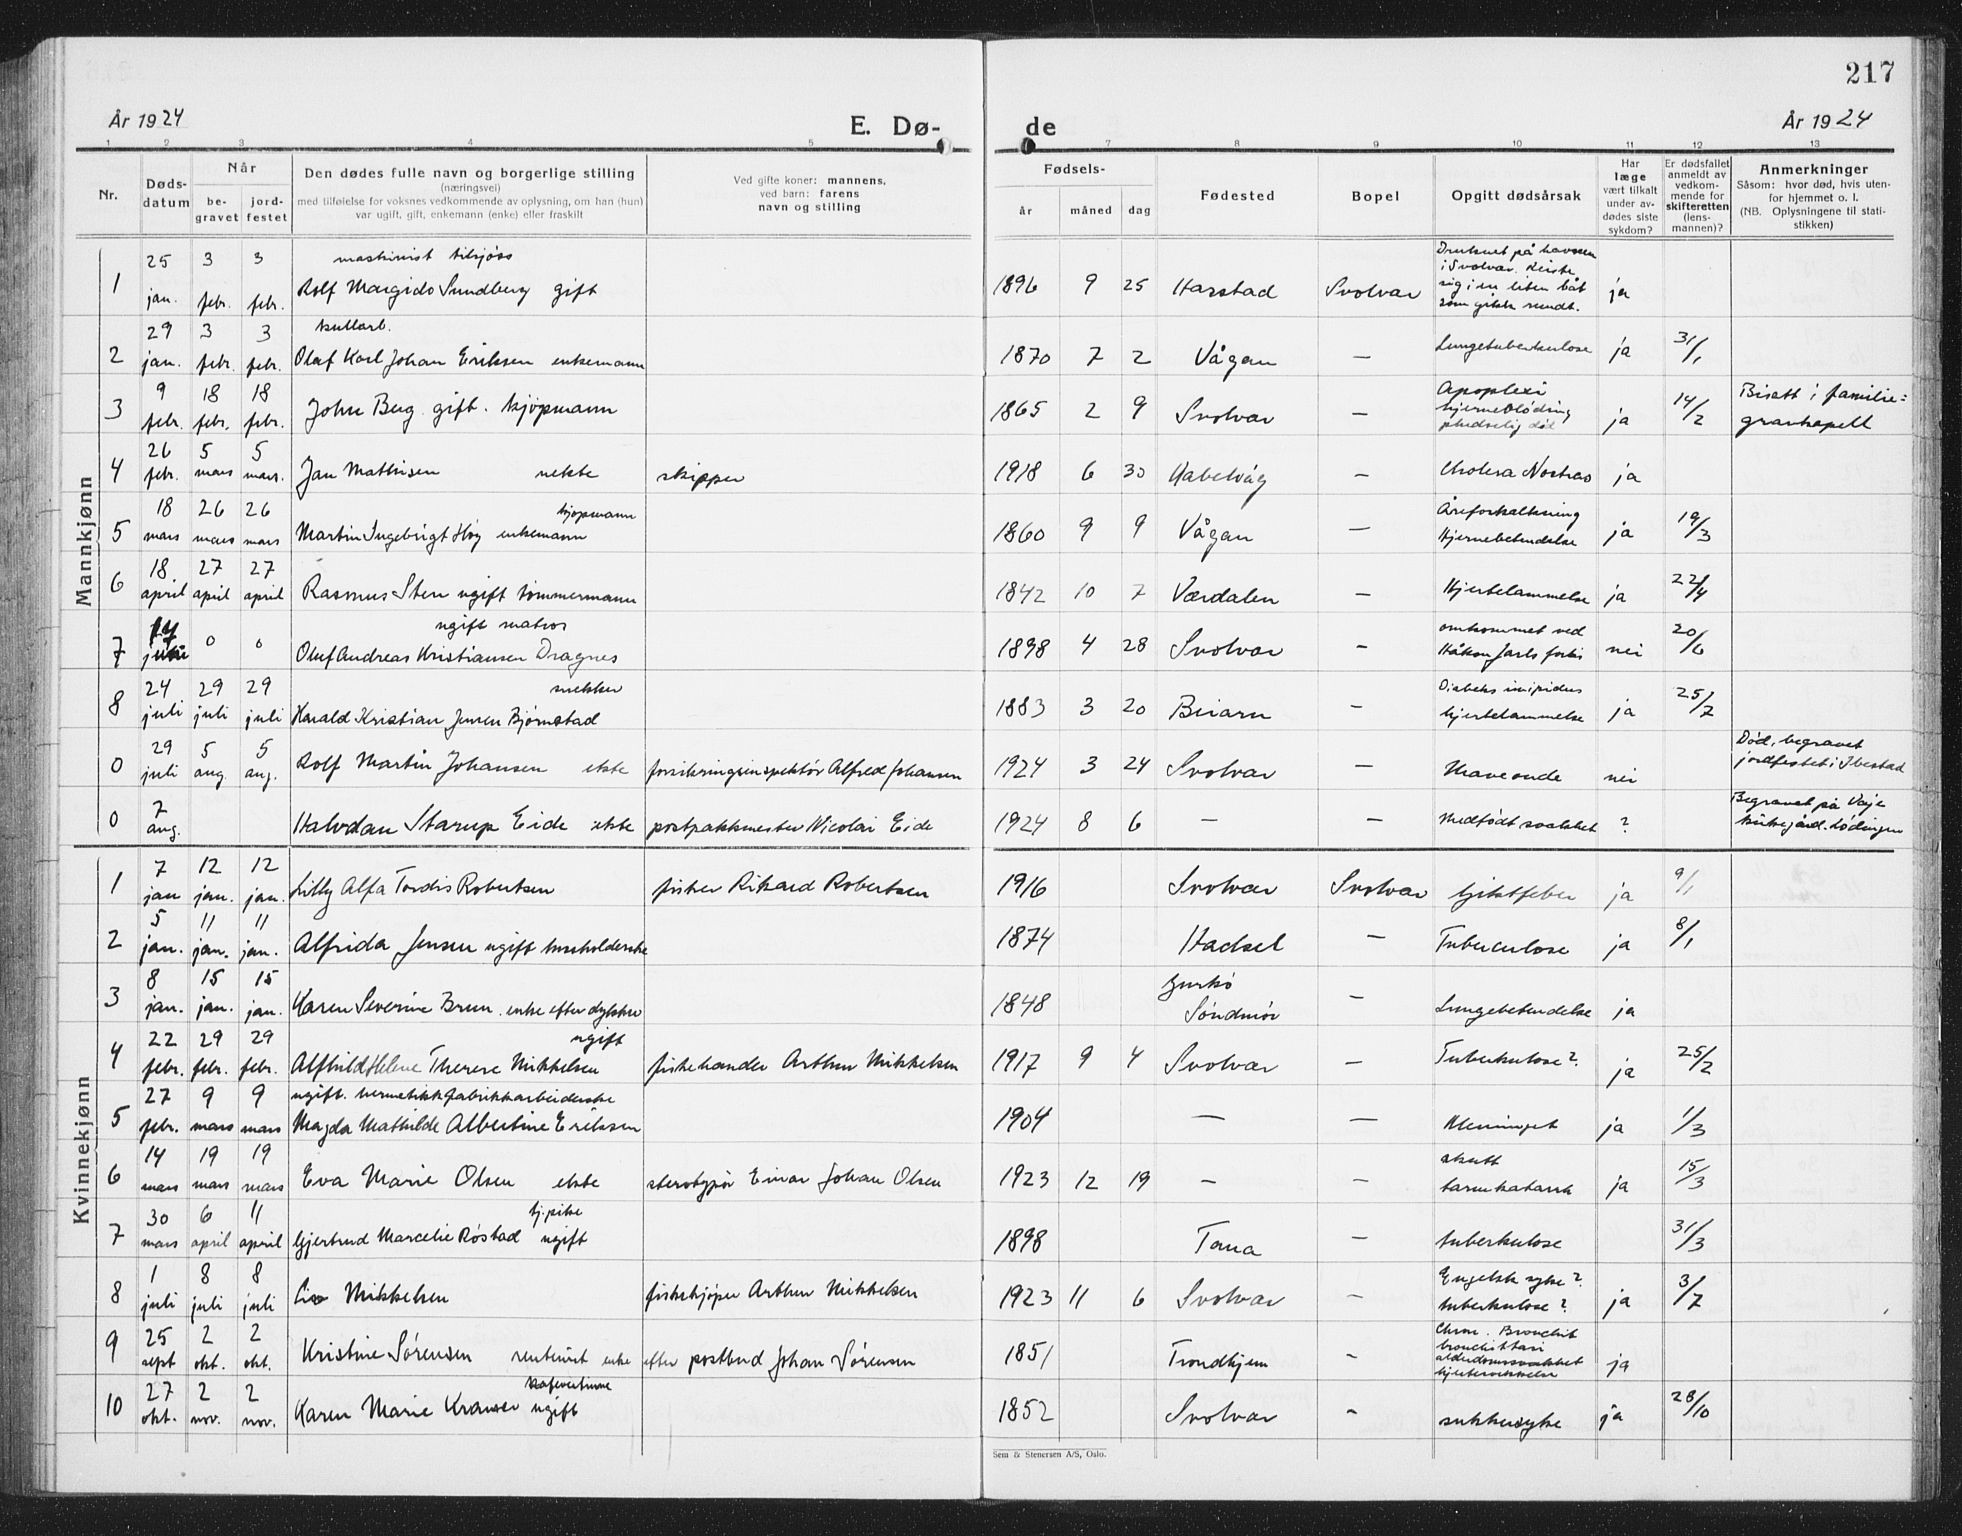 217
År 1924
E. Dø-
de
År 1924
1 2 3 4 5 7 8 9 10 11 12 13
Nr.
Døds-
datum
Når
be-
gravet
jord-
festet
Den dødes fulle navn og borgerlige stilling
(næringsvei)
med tilføielse for voksnes vedkommende av oplysning, om han (hun)
var ugift, gift, enkemann (enke) eller fraskilt
Ved gifte koner: mannens,
ved barn: farens
navn og stilling
Fødsels-
år måned dag
Fødested
Bopel
Opgitt dødsårsak
Har
læge
vært tilkalt
under av-
dødes siste
sykdom?
Er dødsfallet
anmeldt av
vedkom-
mende for
skifteretten
(lens-
mannen)?
Anmerkninger
Såsom: hvor død, hvis uten-
for hjemmet o. l.
(NB. Oplysningene til stati-
stikken)
Mannkjønn
1 25 jan. 3 febr. 3 febr. maskinist tilsjøss
Rolf Margido Sundberg gift 1896 9 25 Harstad Svolvar Druknet på havnen
i Svolvar.
sig i en liten båt
som gikk rundt. ja
2 29 jan. 3 febr. 3 febr. kullarb.
Olaf Karl Johan Eriksen enkemann 1870 7 2 Vågan — Lungetuberkulose ja 31/1
3 9 febr. 18 febr. 18 febr. John Berg gift. kjøpmann 1865 2 9 Svolvar — Apoplexi
hjerneblødning
pludselig død ja 14/2 Bisatt i familie=
gravkapell
4 26 febr. 5 mars 5 mars. Jan Mathisen ekte skipper 1918 6 30 Kabelvåg — Cholera Nostras ja
5 18 mars 26 mars 26 mars kjøpmann
Martin Ingebrigt Høy enkemann 1860 9 9 Vågan — Åreforkalkning
Hjernebetendelse ja 19/3
6 18. april 27 april 27 april Rasmus Sten ugift tømmermann 1842 10 7 Værdalen — Hjertelammelse ja 22/4
7 17 juni 0 0 ugift matros
Oluf Andreas Kristiansen Dragnes 1898 4 28 Svolvar — omkommet ved
Håkon Jarls forlis nei 20/6
8 24 juli 29 juli 29 juli snekker
Harald Kristian Jensen Bjørnstad 1883 3 20 Beiarn — Diabetes insipidus
hjertelammelse ja 25/7
0 29 juli 5 aug. 5 aug. Rolf Martin Johansen ekte forsikringsinspektør Alfred Johansen 1924 3 24 Svolvar — Maveonde nei Død, begravet
jordfestet i Ibestad
0 7 aug. Halvdan Starup Eide ekte postpakkmester Nicolai Eide 1924 8 6 — — Medfødt svakhet ? Begravet på Vaje
kirkegård. Lødingen
Kvinnekjønn
1 7 jan 12 jan. 12 jan. Lilly Alfa Tordis Robertsen fisker Rikard Robertsen 1916 Svolvar Svolvar Gjiktfeber ja 9/1
2 5 jan. 11 jan. 11 jan. Alfrida Jensen ugift husholderske 1874 Hadsel — Tuberculose ja 8/1
3 8 jan. 15 jan. 15 jan. Karen Severine Brun. enke efter dykker 1848 Gurkø
Søndmør — Lungebetendelse ja
4 22 febr. 29 febr. 29 febr. ugift
Alfhild Helene Therese Mikkelsen fiskehandler Arthur Mikkelsen 1917 9 4 Svolvar — Tuberkulose? ja 25/2
5 27 febr. 9 mars 9 mars ugift. hermetikkfabrikkarbeiderske
Magda Mathilde Albertine Eriksen 1904 — — Meninget ja 1/3
6 14 mars 19 mars 19 mars Eva Marie Olsen ekte sterotypør Einar Johan Olsen 1923 12 19 — — akutt
tarmkatarrh ja 15/3
7 30 mars 6 april 11 april tj.pike
Gjertrud Marcelie Røstad ugift 1898 Tana — tuberkulose 31/3
8 1 juli 8 juli 8 juli Liv Mikkelsen fiskekjøper Arthur Mikkelsen 1923 11 6 Svolvar — Engelsk syke?
tuberkulose? ja 3/7
9 25 sept 2 okt. 2 okt. Kristine Sørensen rentenist enke efter postbud Johan Sørensen 1851 Trondhjem — Chron. Bronchit
bronchittasi
alderdomssvakhet
ja
10 27 okt. 2 nov. 2 nov. kafevertinne
Karen Marie Kramer ugift 1852 Svolvar — sukkersyke ja 28/10
Sem & Stenersen A/S, Oslo.